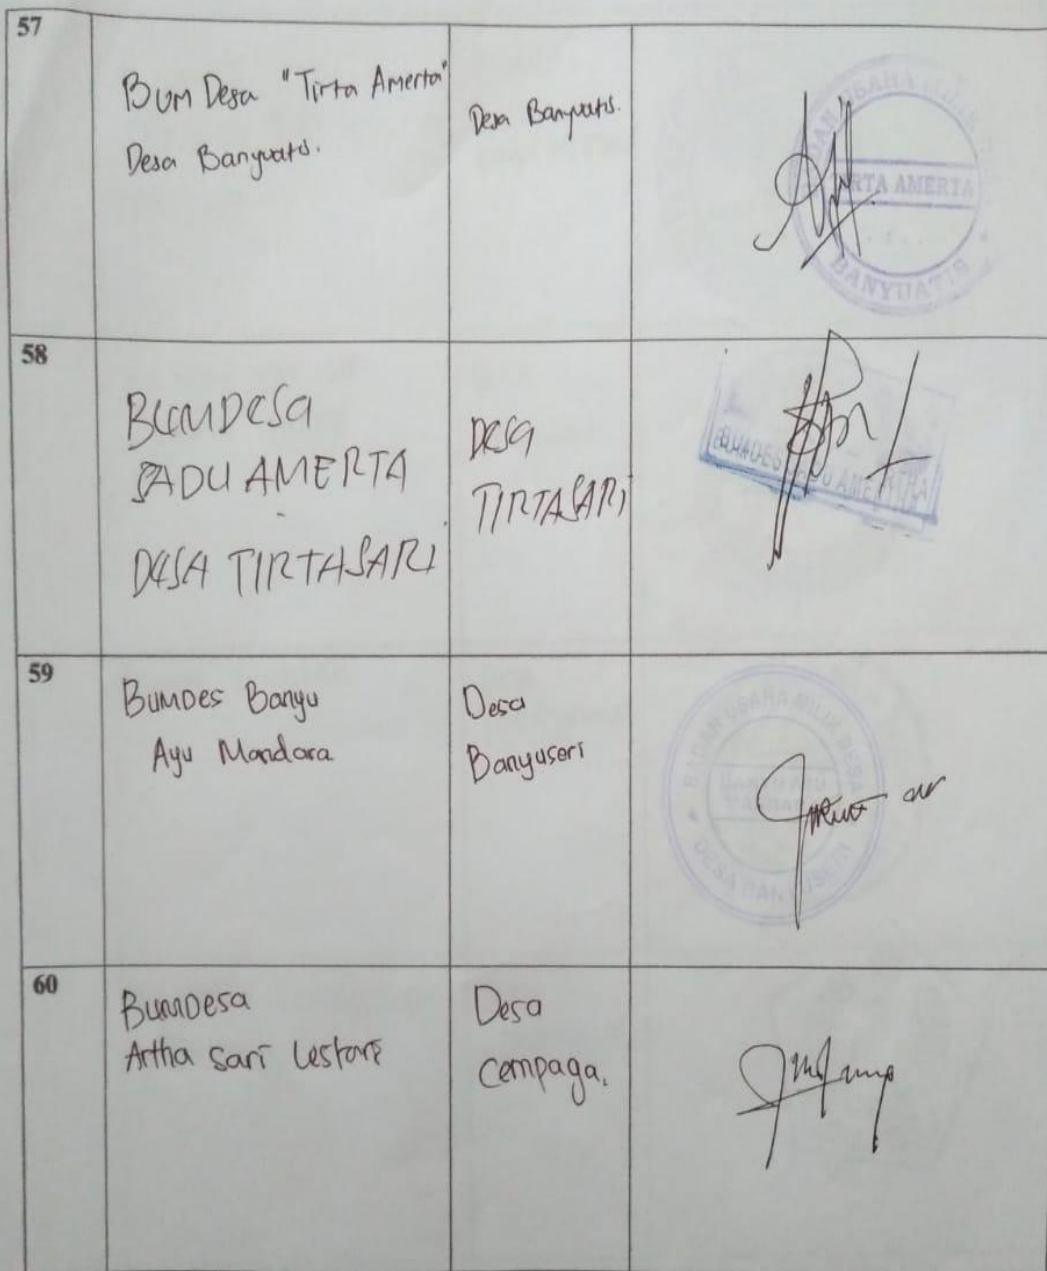 57
BUM Desa "Tirta Amerta"
Desa Banyuatis.
Desa Banyuatis.
BADAN USAHA MILIK
TIRTA AMERTA
BANYUATIS
58
BUMDESA
SADU AMERTA
DESA TIRTASARI
DESA
TIRTASARI
BUMDES SADU AMERTHA
59
BUMDes Banyu
Ayu Mandara
Desa
Banyuseri
BADAN USAHA MILIK DESA
BANYU AYU
MANDARA
DESA BANYUSERI
60
BUMDesa
Artha Sari Lestari
Desa
Cempaga.